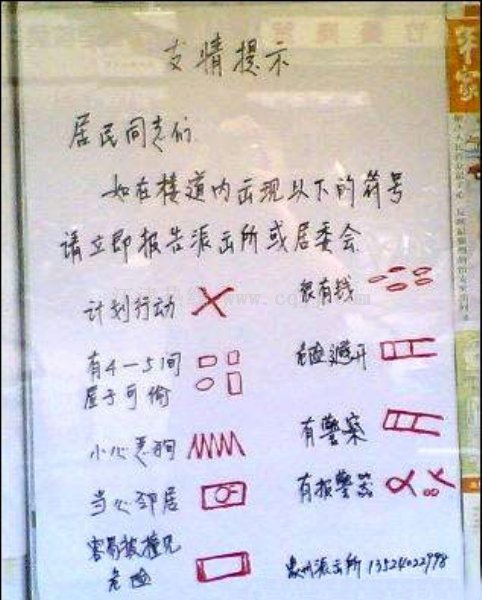 友情提示
居民同志们
如在楼道内出现以下的符号
请立即报告派出所或居委会
计划行动
很有钱
有4—5间
屋子可偷
危险避开
小心恶狗
有警察
当心邻居
有报警器
容易被撞见
危险
派出所 13524022998